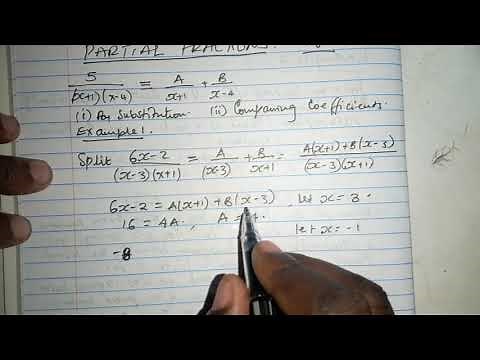 PARTIAL FRACTIONS.
5/(x+1)(x-4) ≡ A/x+1 + B/x-4
(i) By Substitution (ii) Comparing Coefficients.
Example 1.
Split 6x-2/(x-3)(x+1) = A/(x-3) + B/x+1 = A(x+1)+B(x-3)/(x-3)(x+1)
6x-2 = A(x+1) + B(x-3) , let x = 3
16 = 4A , A = 4.
let x = -1
-8